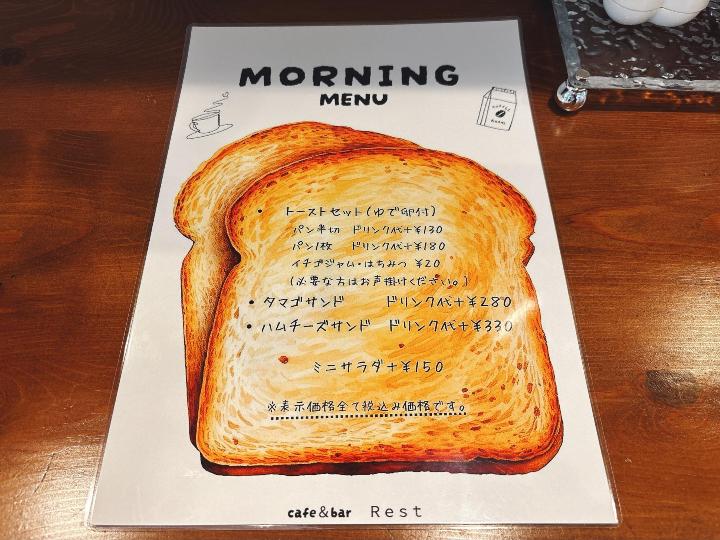 MORNING
MENU
COFFEE
BEANS
・ トーストセット(ゆで卵付)
パン半切 ドリンク代+¥130
パン1枚 ドリンク代+¥180
イチゴジャム・はちみつ ¥20
(必要な方はお声掛けください。)
・タマゴサンド ドリンク代+¥280
・ハムチーズサンド ドリンク代+¥330
ミニサラダ+¥150
※表示価格全て税込み価格です。
cafe&bar Rest